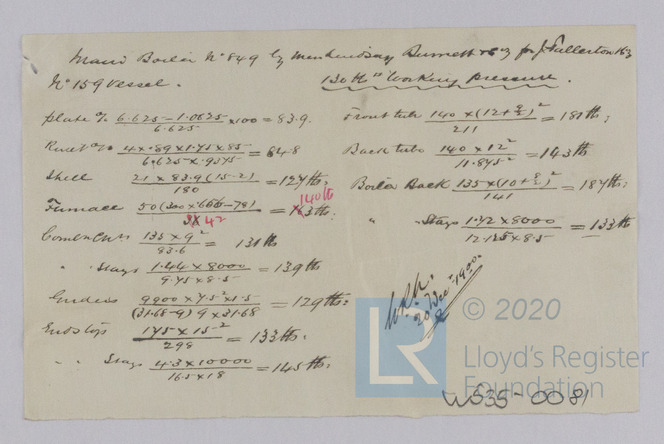 Main Boiler No 849 by Mess Lindsay Burnett & Co for J. Fullerton & Co
No 159 Vessel. 130 lb Working Pressure.
Plate % 6.625-1.0625 / 6.625 ×100 = 83.9.
Rivet % 4×.89×1.75×85 / 6.625×.9375 = 84.8
Shell 21×83.9(15-2) / 180 = 127 lb:
Furnace 50(300×.666-78) / 42 = 140 lb
Comb n Chrs 135×9² / 83.6 = 131 lb
" Stays 1.44×8000 / 9.75×8.5 = 139 lb
Girders 9900×7.5²×1.5 / (31.68-9)9×31.68 = 129 lb:
Ends top 175×15²  / 298 = 133 lb:
" " Stays 4.3×10000 / 16.5×18 = 145 lb:
Front tube 140×(12+9/2)² / 211 = 181 lb:
Back tube 140×12² / 11.875² = 143 lb
Boiler Back 135×(10+9/2)² / 141 = 187 lb:
" Stays 1.72×8000 / 12.125×8.5 = 133 lb
20 Dec 1900.
© 2020
LR
Lloyd's Register
Foundation
WS35-0081